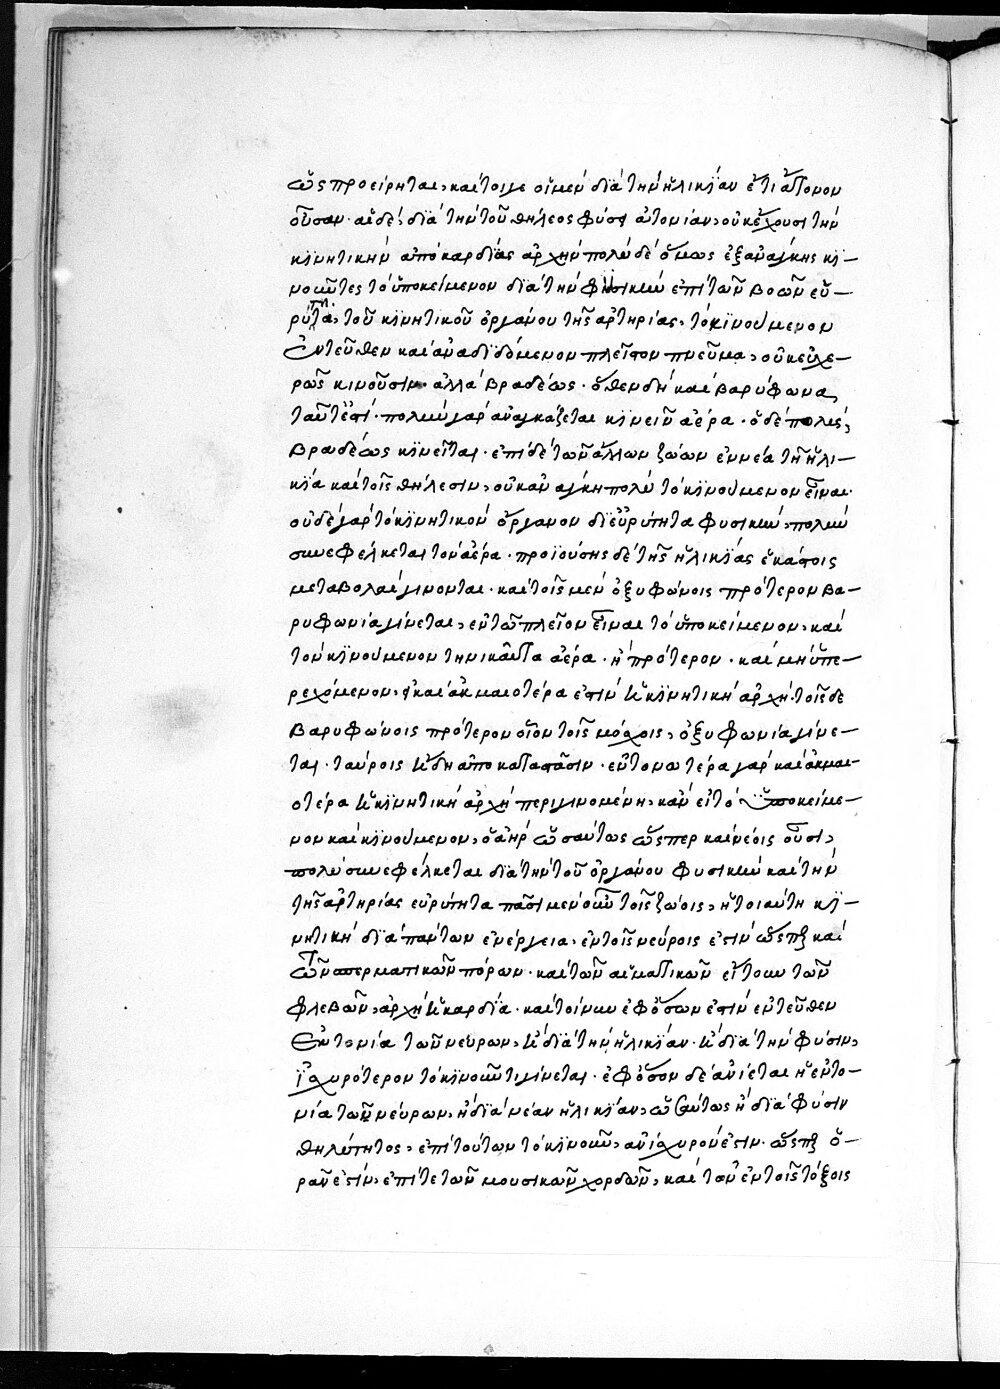 ὥς προείρηται, καίτοιγε οἱ μὲν διὰ τὴν ἡλικίαν ἔτι ἄτονον
οὖσαν· αἱ δὲ, διὰ τὴν τοῦ θήλεος φύσιν ἀτονίαν, οὐκ ἔχουσι τὴν
κινητικὴν ἀπὸ καρδίας ἀρχὴν πολὺ δὲ ὅμως ἐξανάγκης κι-
νοῦντες τὸ ὑποκείμενον διὰ τὴν φυσικὴν ἐπὶ τῶν βοῶν εὐ-
ρύτητα, τοῦ κινητικοῦ ὀργάνου τῆς ἀρτηρίας, τὸ κινούμενον
ἐντεῦθεν καὶ ἀναδιδόμενον πλεῖστον πνεῦμα, οὐκ εὐχε-
ρῶς κινοῦσιν· ἀλλὰ βραδέως· ὅθεν δὴ καὶ βαρύφωνα,
ταῦτ' ἐστί· πολὺν γὰρ ἀναγκάζεται κινεῖν ἀέρα· ὁ δὲ πολὺς,
βραδέως κινεῖται· ἐπὶ δὲ τῶν ἄλλων ζώων ἐν νέα τῇ ἡλι-
κία καὶ τοῖς θήλεσιν, οὐκ ἀνάγκη πολὺ τὸ κινούμενον εἶναι·
οὐδὲ γὰρ τὸ κινητικὸν ὄργανον δι' εὐρύτητα φυσικὴν, πολὺν
συνεφέλκεται τὸν ἀέρα· προϊούσης δὲ τῆς ἡλικίας ἑκάστοις
μεταβολαὶ γίνονται· καὶ τοῖς μὲν ὀξυφώνοις πρότερον βα-
ρυφωνία γίνεται, ἐν τῶ πλεῖον εἶναι τὸ ὑποκείμενον, καὶ
τὸν κινούμενον τηνικαῦτα ἀέρα· ἢ πρότερον· καὶ μὴ ὑπε-
ρεχόμενον, καὶ ἀκμαιοτέρα ἐστὶν ἡ κινητικὴ ἀρχή· τοῖς δε
βαρυφώνοις πρότερον οἷον τοῖς μόσχοις, ὀξυφωνία γίνε-
ται· ταύροις ἤδη ἀποκαταστᾶσιν· εὐτονωτέρα γὰρ καὶ ἀκμαι-
οτέρα ἡ κινητικὴ ἀρχὴ περιγινομένη, κἂν εἰ τὸ ὑποκείμε-
νον καὶ κινούμενον, ὁ ἀὴρ ὡσαύτως ὥσπερ καὶ νέοις οὖσι,
πολὺ συνεφέλκεται διὰ τὴν τοῦ ὀργάνου φυσικὴν καὶ τὴν
τῆς ἀρτηρίας εὐρύτητα πᾶσι μὲν οὖν τοῖς ζώοις, ἡ τοιαύτη κι-
νητικὴ διὰ πάντων ἐνέργεια, ἐν τοῖς νεύροις ἐστὶν ὥσπερ καὶ
τῶν σπερματικῶν πόρων· καὶ τῶν αἱματικῶν εἴτουν τῶν
φλεβῶν, ἀρχὴ ἡ καρδία· καὶ τοίνυν ἐφ' ὅσων ἐστὶν ἐντεῦθεν
εὐτονία τῶν νεύρων, ἢ διὰ τὴν ἡλικίαν· ἢ διὰ τὴν φύσιν,
ἰσχυρότερον τὸ κινοῦν τι γίνεται· ἐφ' ὅσον δὲ ἀνίεται ἡ εὐτο-
νία τῶν νεύρων, ἢ διὰ νέαν ἡλικίαν, ὡσαύτως ἢ διὰ φύσιν
θηλύτητος, ἐπὶ τούτων τὸ κινοῦν, ἀνίσχυρόν ἐστιν· ὥσπερ ὁ-
ρᾶν ἐστίν, ἐπί τε τῶν μουσικῶν χορδῶν, καὶ τῶν ἐν τοῖς τόξοις